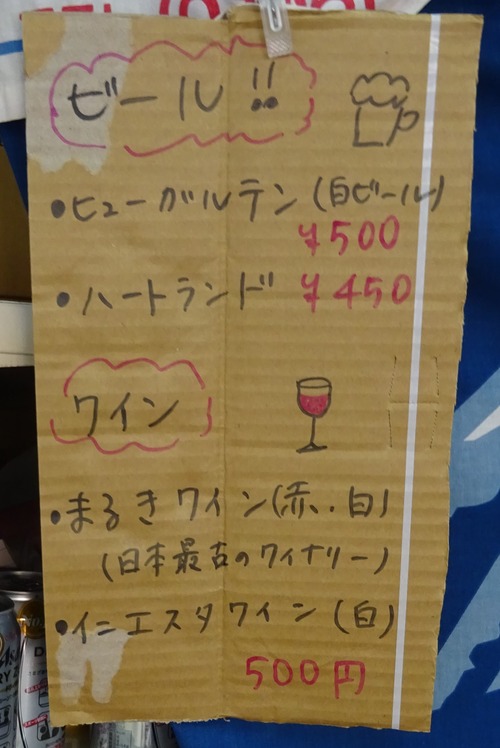 ビール!!
•ヒューガルテン(白ビール)
¥500
•ハートランド ¥450
ワイン
•まるきワイン(赤.白)
(日本最古のワイナリー)
•イニエスタワイン(白)
500円